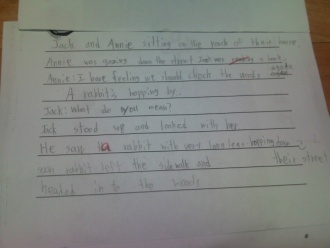 Jack and Annie sitting in the porch of their house.
Annie was gazing down the street Jack was a book.
Annie: I have feeling we should check the woods again
A rabbit's hopping by.
Jack: What do you mean?
Jack stood up and looked with
He saw a rabbit with very long legs hopping down
the rabbit left the sidewalk and their street
headed in to the woods